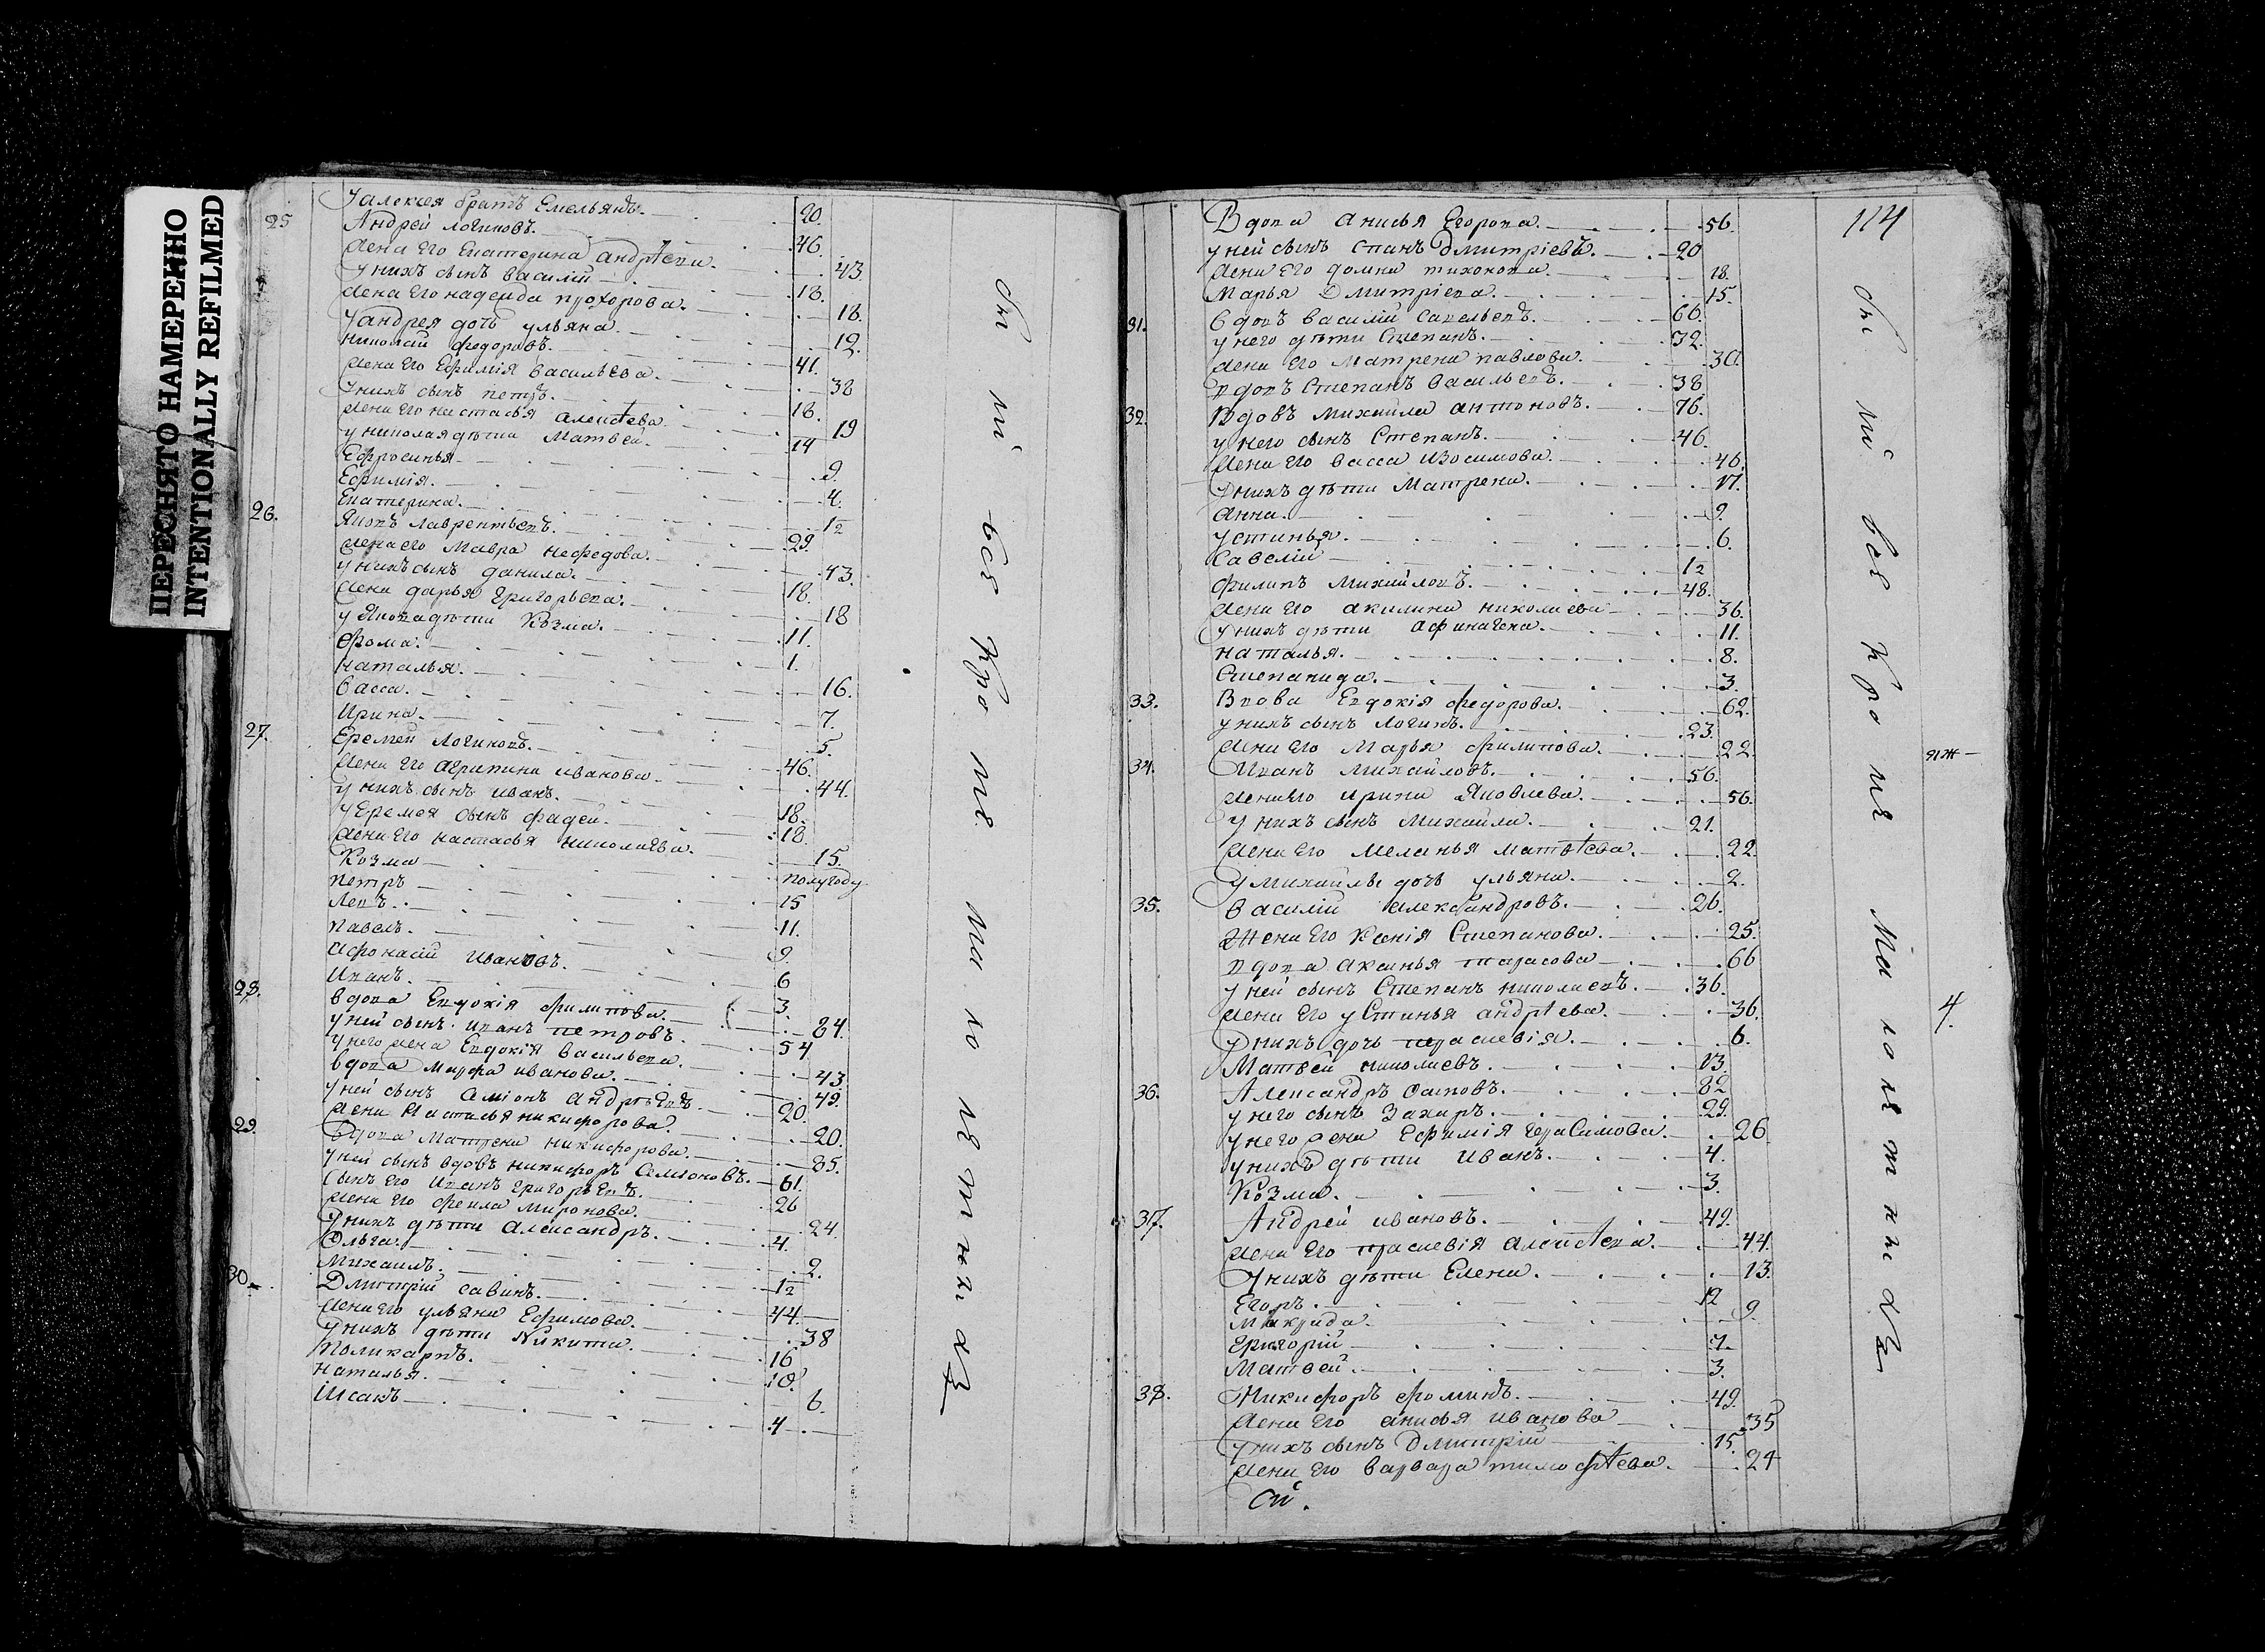 ПЕРЕСНЯТО НАМЕРЕННО
INTENTIONALLY REFILMED
У алексея братъ Емельянъ. 20.
25 Андрей логиновъ. 46.
жена его Екатерина андрѣева. 43.
у нихъ сынъ василій 18.
жена его надежда прохорова. 18.
у андрея дочь ульяна. 12.
николай федоровъ. 41.
жена Его Ефимія васильева. 38
у нихъ сынъ петръ. 18.
жена его настасья алексѣева. 19
у николая дѣти Матвей. 14
Ефросинья 9.
Ефимія. 4.
Екатерина. 1/2
26. Яковъ лаврентьевъ. 29.
жена его Мавра нефедова. 43.
у нихъ сынъ данила. 18.
жена дарья григорьева. 18
у Якова дѣти Козма. 11.
Фома. 1.
наталья. 16.
васса. 7.
Ирина. 5.
27. Еремей логиновъ. 46.
жена Его агрипина иванова. 44.
у нихъ сынъ иванъ. 18.
у Еремея сынъ фадей. 18.
жена Его настасья николаева. 15.
Козма полугоду
петръ 15
Левъ. 11.
павелъ. 9.
Афонасій ивановъ. 6
Иванъ. 3.
28. вдова Евдокія филипова. 84.
у ней сынъ иванъ петровъ. 54
у него жена Евдокія васильева. 43.
вдова Марфа иванова. 49.
у ней сынъ Семіонъ андрѣевъ. 20.
жена Настасья никифорова. 20.
29. Вдова Матрена никифорова. 85.
у ней сынъ вдовъ никифоръ Семіоновъ. 61.
Сынъ его Иванъ григорьевъ. 26
жена его фекла миронова. 24.
у нихъ дѣти александръ. 4.
Ольга. 2.
Михаилъ. 1/2
30. Дмитрій савинъ. 44.
жена его ульяна Ефимова. 38
у нихъ дѣти Никита. 16
поликарпъ. 10.
наталья. 6.
Исакъ 4
они всѣ кромѣ малолѣтныхъ
114
Вдова анисья Егорова. 56.
у ней сынъ Дмитріевъ. 20
жена его домна тихонова. 18.
Марья Дмитріева. 15.
31. вдовъ василій савельевъ. 66.
у него дѣти Степанъ. 32.
жена его Матрена павлова. 30.
вдовъ Степанъ васильевъ. 38
32. Вдовъ михаила антоновъ. 76.
у него сынъ Степанъ. 46.
жена его васса изосимова. 46.
у нихъ дѣти Матрена. 17.
анна. 9.
устинья. 6.
Савелій 1/2
филипъ михайловъ. 48.
жена его акилина николаева 36.
у нихъ дѣти 11.
наталья. 8.
Степанида. 3.
33. Вдова Евдокія федорова. 62.
у нихъ сынъ логинъ. 23.
жена его Марья филипова. 22.
34. Иванъ михайловъ. 56.
жена его ирина Яковлева. 56.
у нихъ сынъ Михаила. 21.
жена Его меланья матвѣева. 22.
у михаилы дочь ульяна. 2.
35. василій александровъ. 26.
Жена Его Ксенія Степанова. 25.
вдова аксинья тарасова 66
у ней сынъ Степанъ николаевъ. 36.
жена Его устинья андрѣева. 36.
у нихъ дочь прасковія. 6.
Матвей николаевъ. 13.
36. Александръ осиповъ. 82
у него сынъ Захаръ. 29.
у него жена Ефимія герасимова. 26
у нихъ дѣти иванъ. 4.
Козма. 3.
37. Андрей ивановъ. 49.
жена Его прасковія алексѣева. 44.
у нихъ дѣти Елена. 13.
Егоръ. 12
Макрида. 9.
григорій 7.
Матвей. 3.
38. Никифоръ фоминъ. 49.
жена его анисья иванова 35
у нихъ сынъ Дмитрій 15.
жена его варвара тимофѣева. 24
они всѣ кромѣ малолѣтныхъ
4.